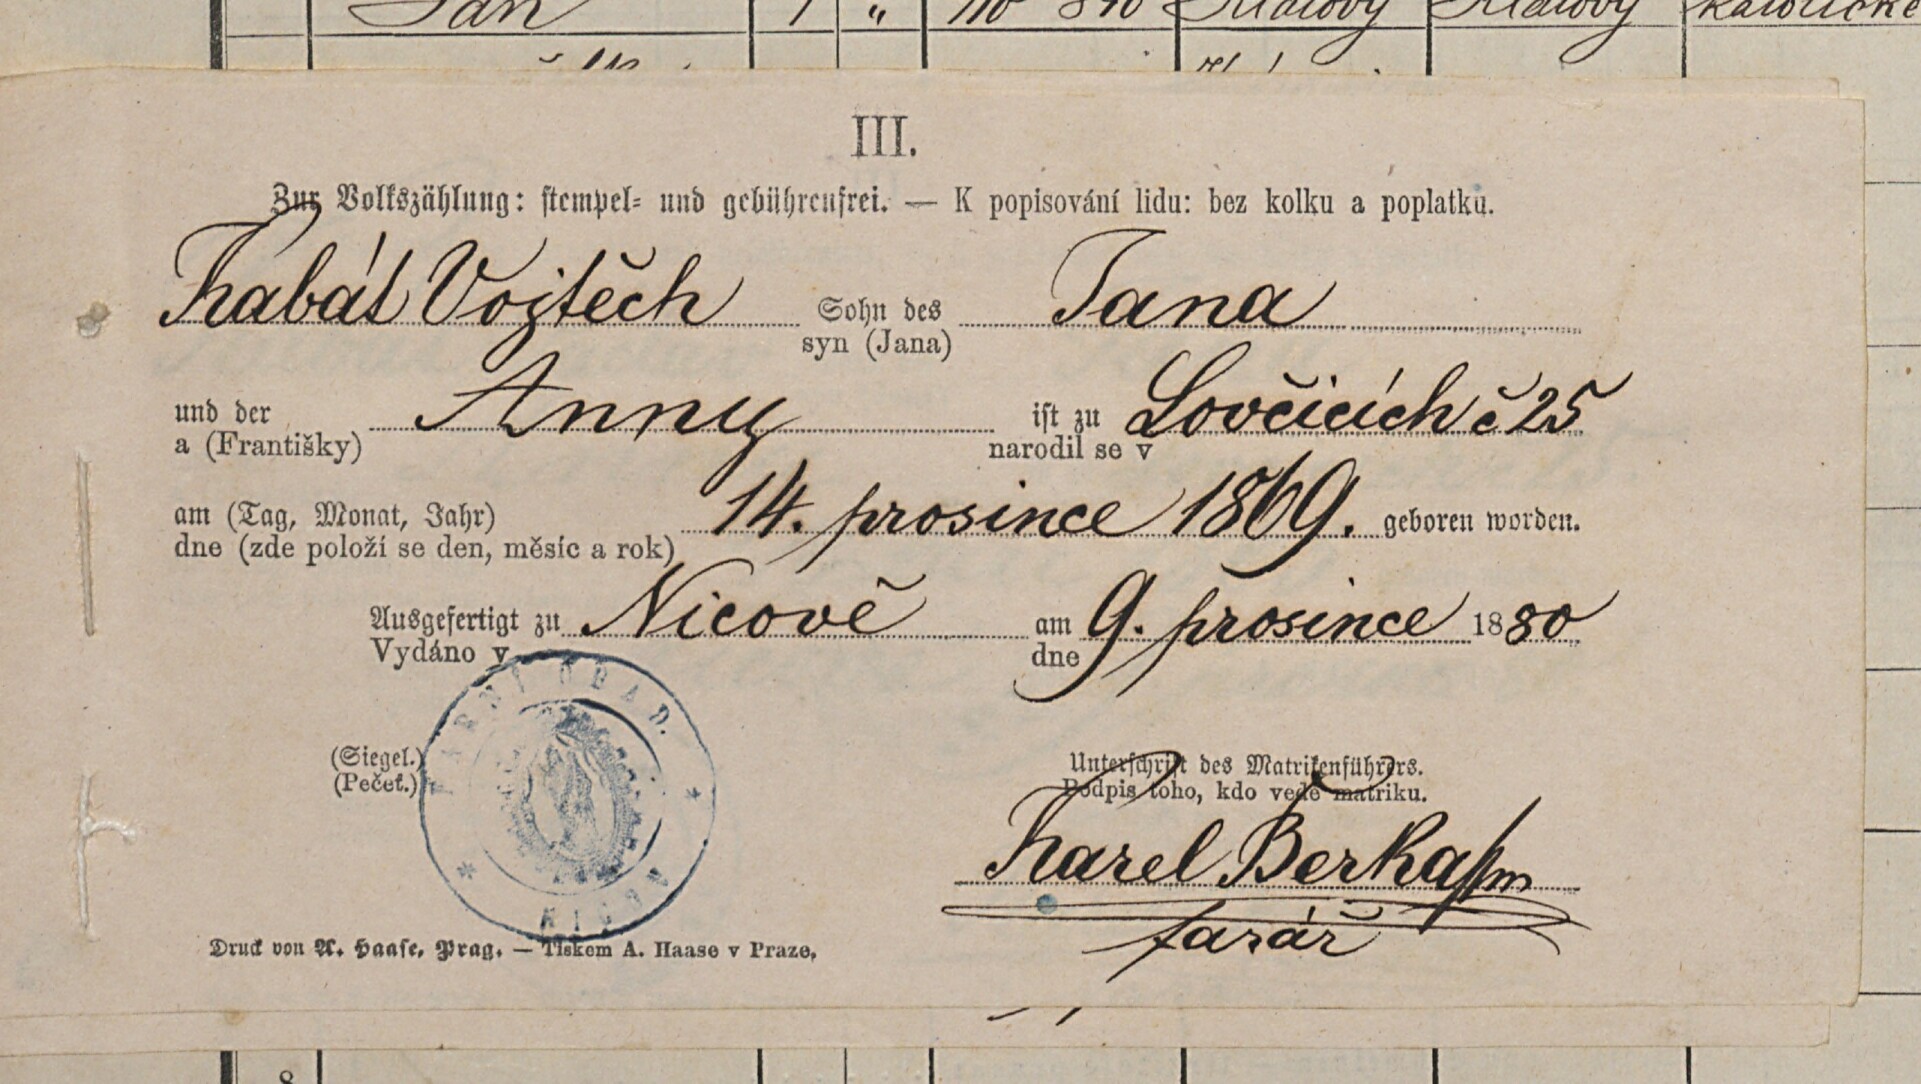 Jan 1 " 1
III.
Zur Volkszählung: stempel- und gebührenfrei. — K popisování lidu: bez kolku a poplatku.
Kabát Vojtěch Sohn des Jana
syn (Jana)
und der Anny ist zu Lovčicích č 25
a (Františky) narodil se v
am (Tag, Monat, Jahr) 14. prosince 1869. geboren worden.
dne (zde položí se den, měsíc a rok)
Ausgefertigt zu Nicově am 9. prosince 1880
Vydáno v dne
FARNÍ ÚŘAD.
NICOV
(Siegel.) Unterschrift des Matrikenführers.
(Pečeť.) Podpis toho, kdo vede matriku.
Karel Berka
farář
Druck von A. Haase, Prag. — Tiskem A. Haase v Praze.
8